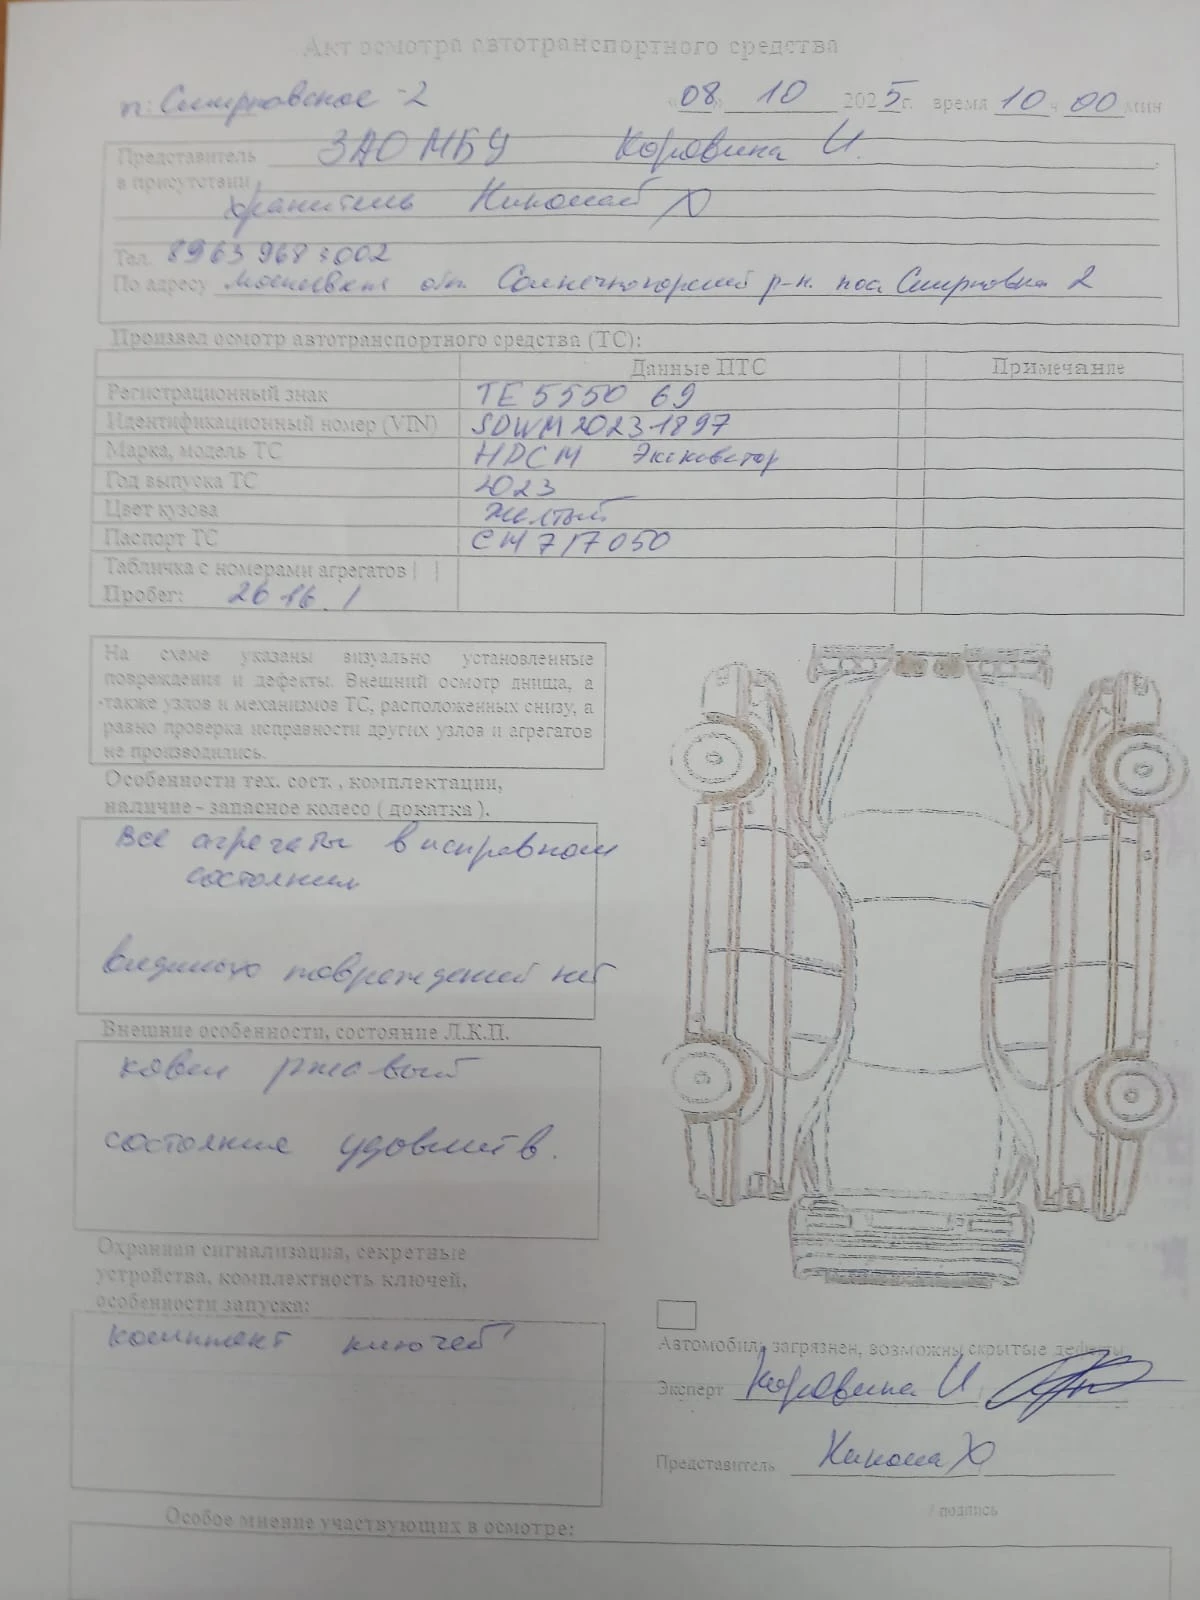 Акт осмотра автотранспортного средства
п. Смирновское -2 «08» 10 2025г. время 10 ч 00 мин
Представитель ЗАО МБУ Коровина И.
в присутствии
хранитель Николай Х
Тел. 8963 968 3002
По адресу Московская обл. Солнечногорский р-н. пос Смирновка 2
Произвел осмотр автотранспортного средства (ТС):
Данные ПТС Примечание
Регистрационный знак ТЕ 5550 69
Идентификационный номер (VIN) SDWM2023-1897
Марка, модель ТС Экскаватор
Год выпуска ТС 2023
Цвет кузова Желтый
Паспорт ТС СМ 717050
Табличка с номерами агрегатов | |
Пробег: 2616.1
На схеме указаны визуально установленные
повреждения и дефекты. Внешний осмотр днища, а
также узлов и механизмов ТС, расположенных снизу, а
равно проверка исправности других узлов и агрегатов
не производились.
Особенности тех. сост. , комплектации,
наличие - запасное колесо ( докатка ).
Все агрегаты в исправном
состоянии
видимых повреждений нет
Внешние особенности, состояние Л.К.П.
ковш ржавый
состояние удовлетв.
Охранная сигнализация, секретные
устройства, комплектность ключей,
особенности запуска:
комплект ключей
Автомобиль загрязнен, возможны скрытые дефекты
Эксперт Коровина И
Представитель Никола Х
/ подпись
Особое мнение участвующих в осмотре: